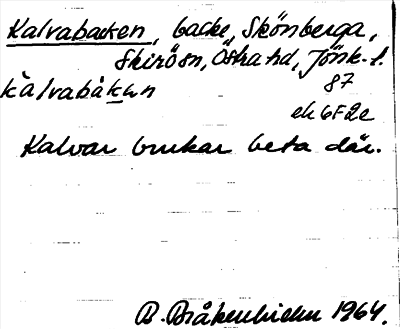 Kalvabacken, backe, Skönberga,
Skirö sn, Östra hd, Jönk. l.
kàlvabàkən
87
ek 6F2e
Kalvar brukar beta där.
B. Bråkenhielm 1964.